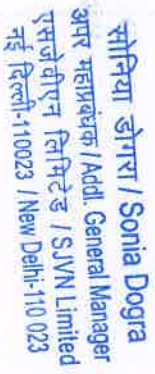 सोनिया डोगरा / Sonia Dogra
अपर महाप्रबंधक / Addl. General Manager
एसजेवीएन लिमिटेड / SJVN Limited
नई दिल्ली-110023 / New Delhi-110 023